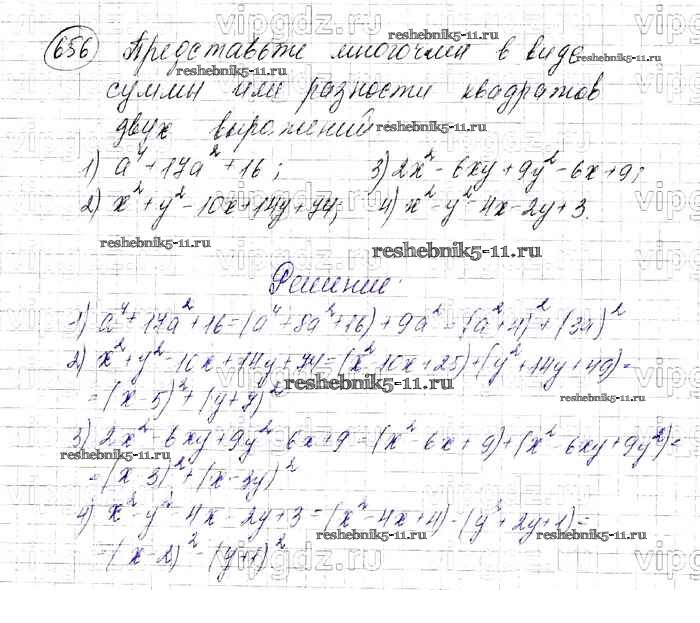 656 Представьте многочлен в виде
суммы или разности квадратов
двух выражений
1) a⁴+17a²+16; 3) 2x²-6xy+9y²-6x+9;
2) x²+y²-10x+14y+74; 4) x²-y²-4x-2y+3.
Решение:
1) a⁴+17a²+16=(a⁴+8a²+16)+9a²=(a²+4)²+(3a)²
2) x²+y²-10x+14y+74=(x²-10x+25)+(y²+14y+49)=
=(x-5)²+(y+7)²
3) 2x²-6xy+9y²-6x+9=(x²-6x+9)+(x²-6xy+9y²)=
=(x-3)²+(x-3y)²
4) x²-y²-4x-2y+3=(x²-4x+4)-(y²+2y+1)=
=(x-2)²-(y+1)²
reshebnik5-11.ru
vipgdz.ru